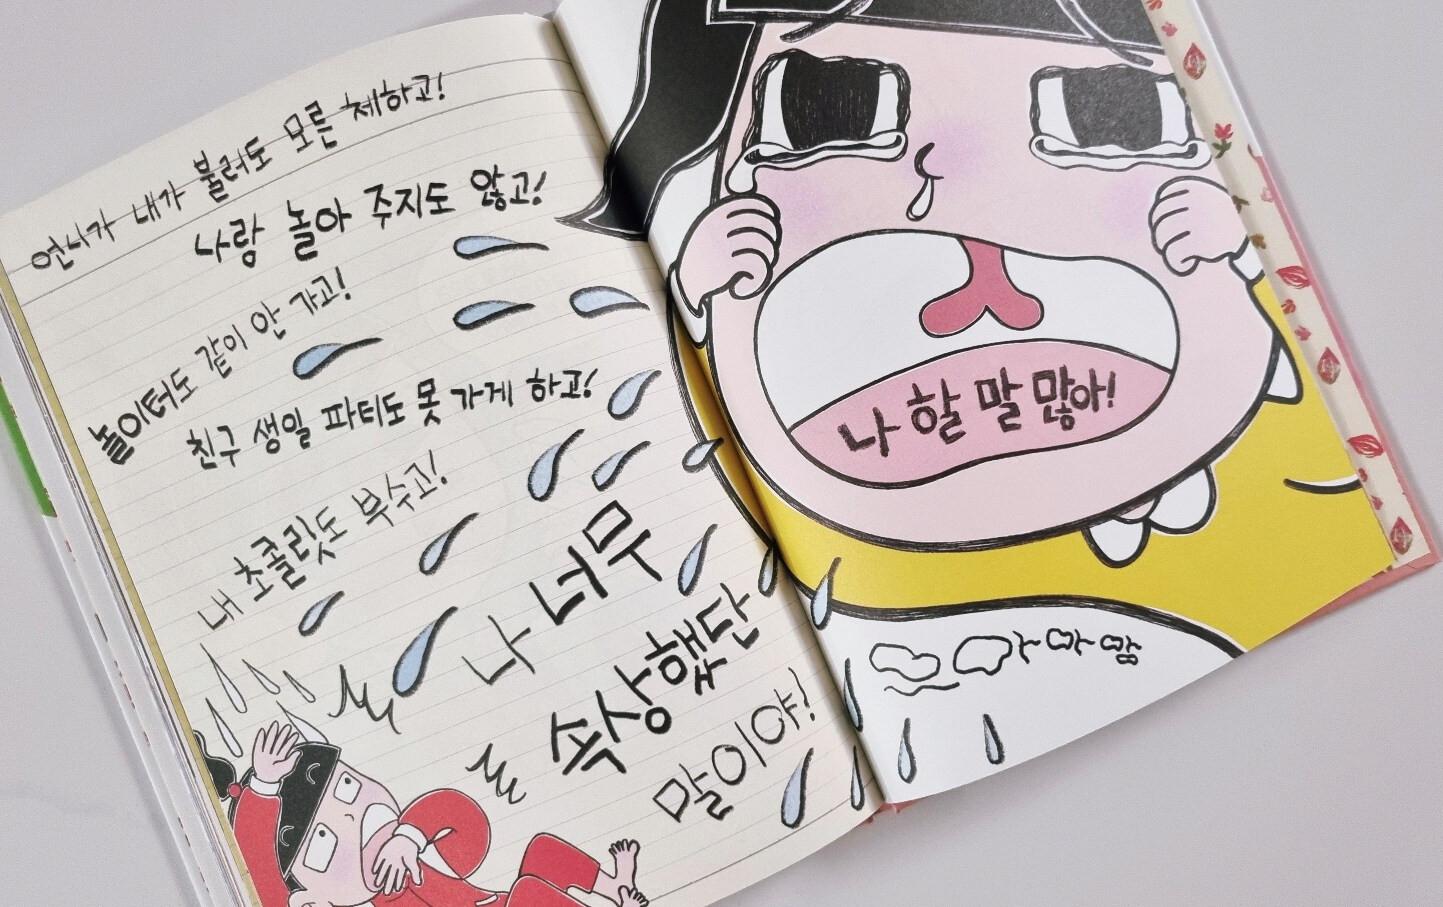 언니가 내가 불러도 모른 체하고!
나랑 놀아 주지도 않고!
놀이터도 같이 안 가고!
친구 생일 파티도 못 가게 하고!
내 초콜릿도 부수고!
나 너무
속상했단
말이야!
나 할 말 많아!